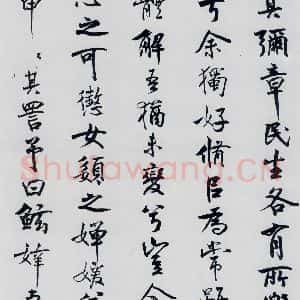 其彌章民生各有所樂
兮余獨好脩㠯為常雖
體解吾猶未變兮豈余
心之可懲女須之嬋媛兮
申〻其詈予曰鮌婞直
Shufawang.Cn